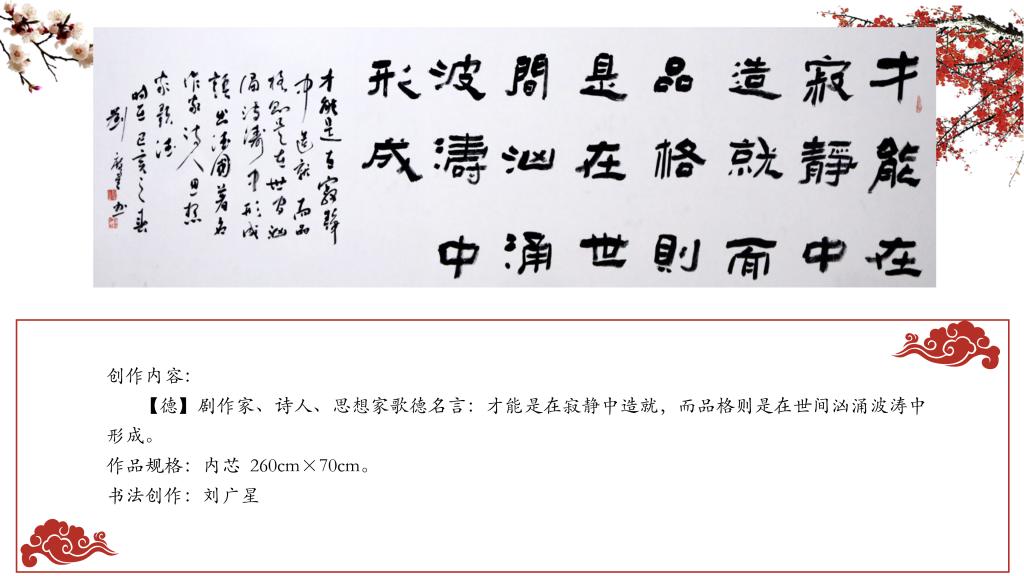 才能在
寂靜中
造就而
品格則
是在世
間汹涌
波濤中
形成
才能是在寂静
中造就而品
格则是在世间汹
涌波濤中形成
德國著名
作家诗人思想
家歌德
时在己亥之春
劉广星书
创作内容：
【德】剧作家、诗人、思想家歌德名言：才能是在寂静中造就，而品格则是在世间汹涌波涛中
形成。
作品规格：内芯 260cm×70cm。
书法创作：刘广星